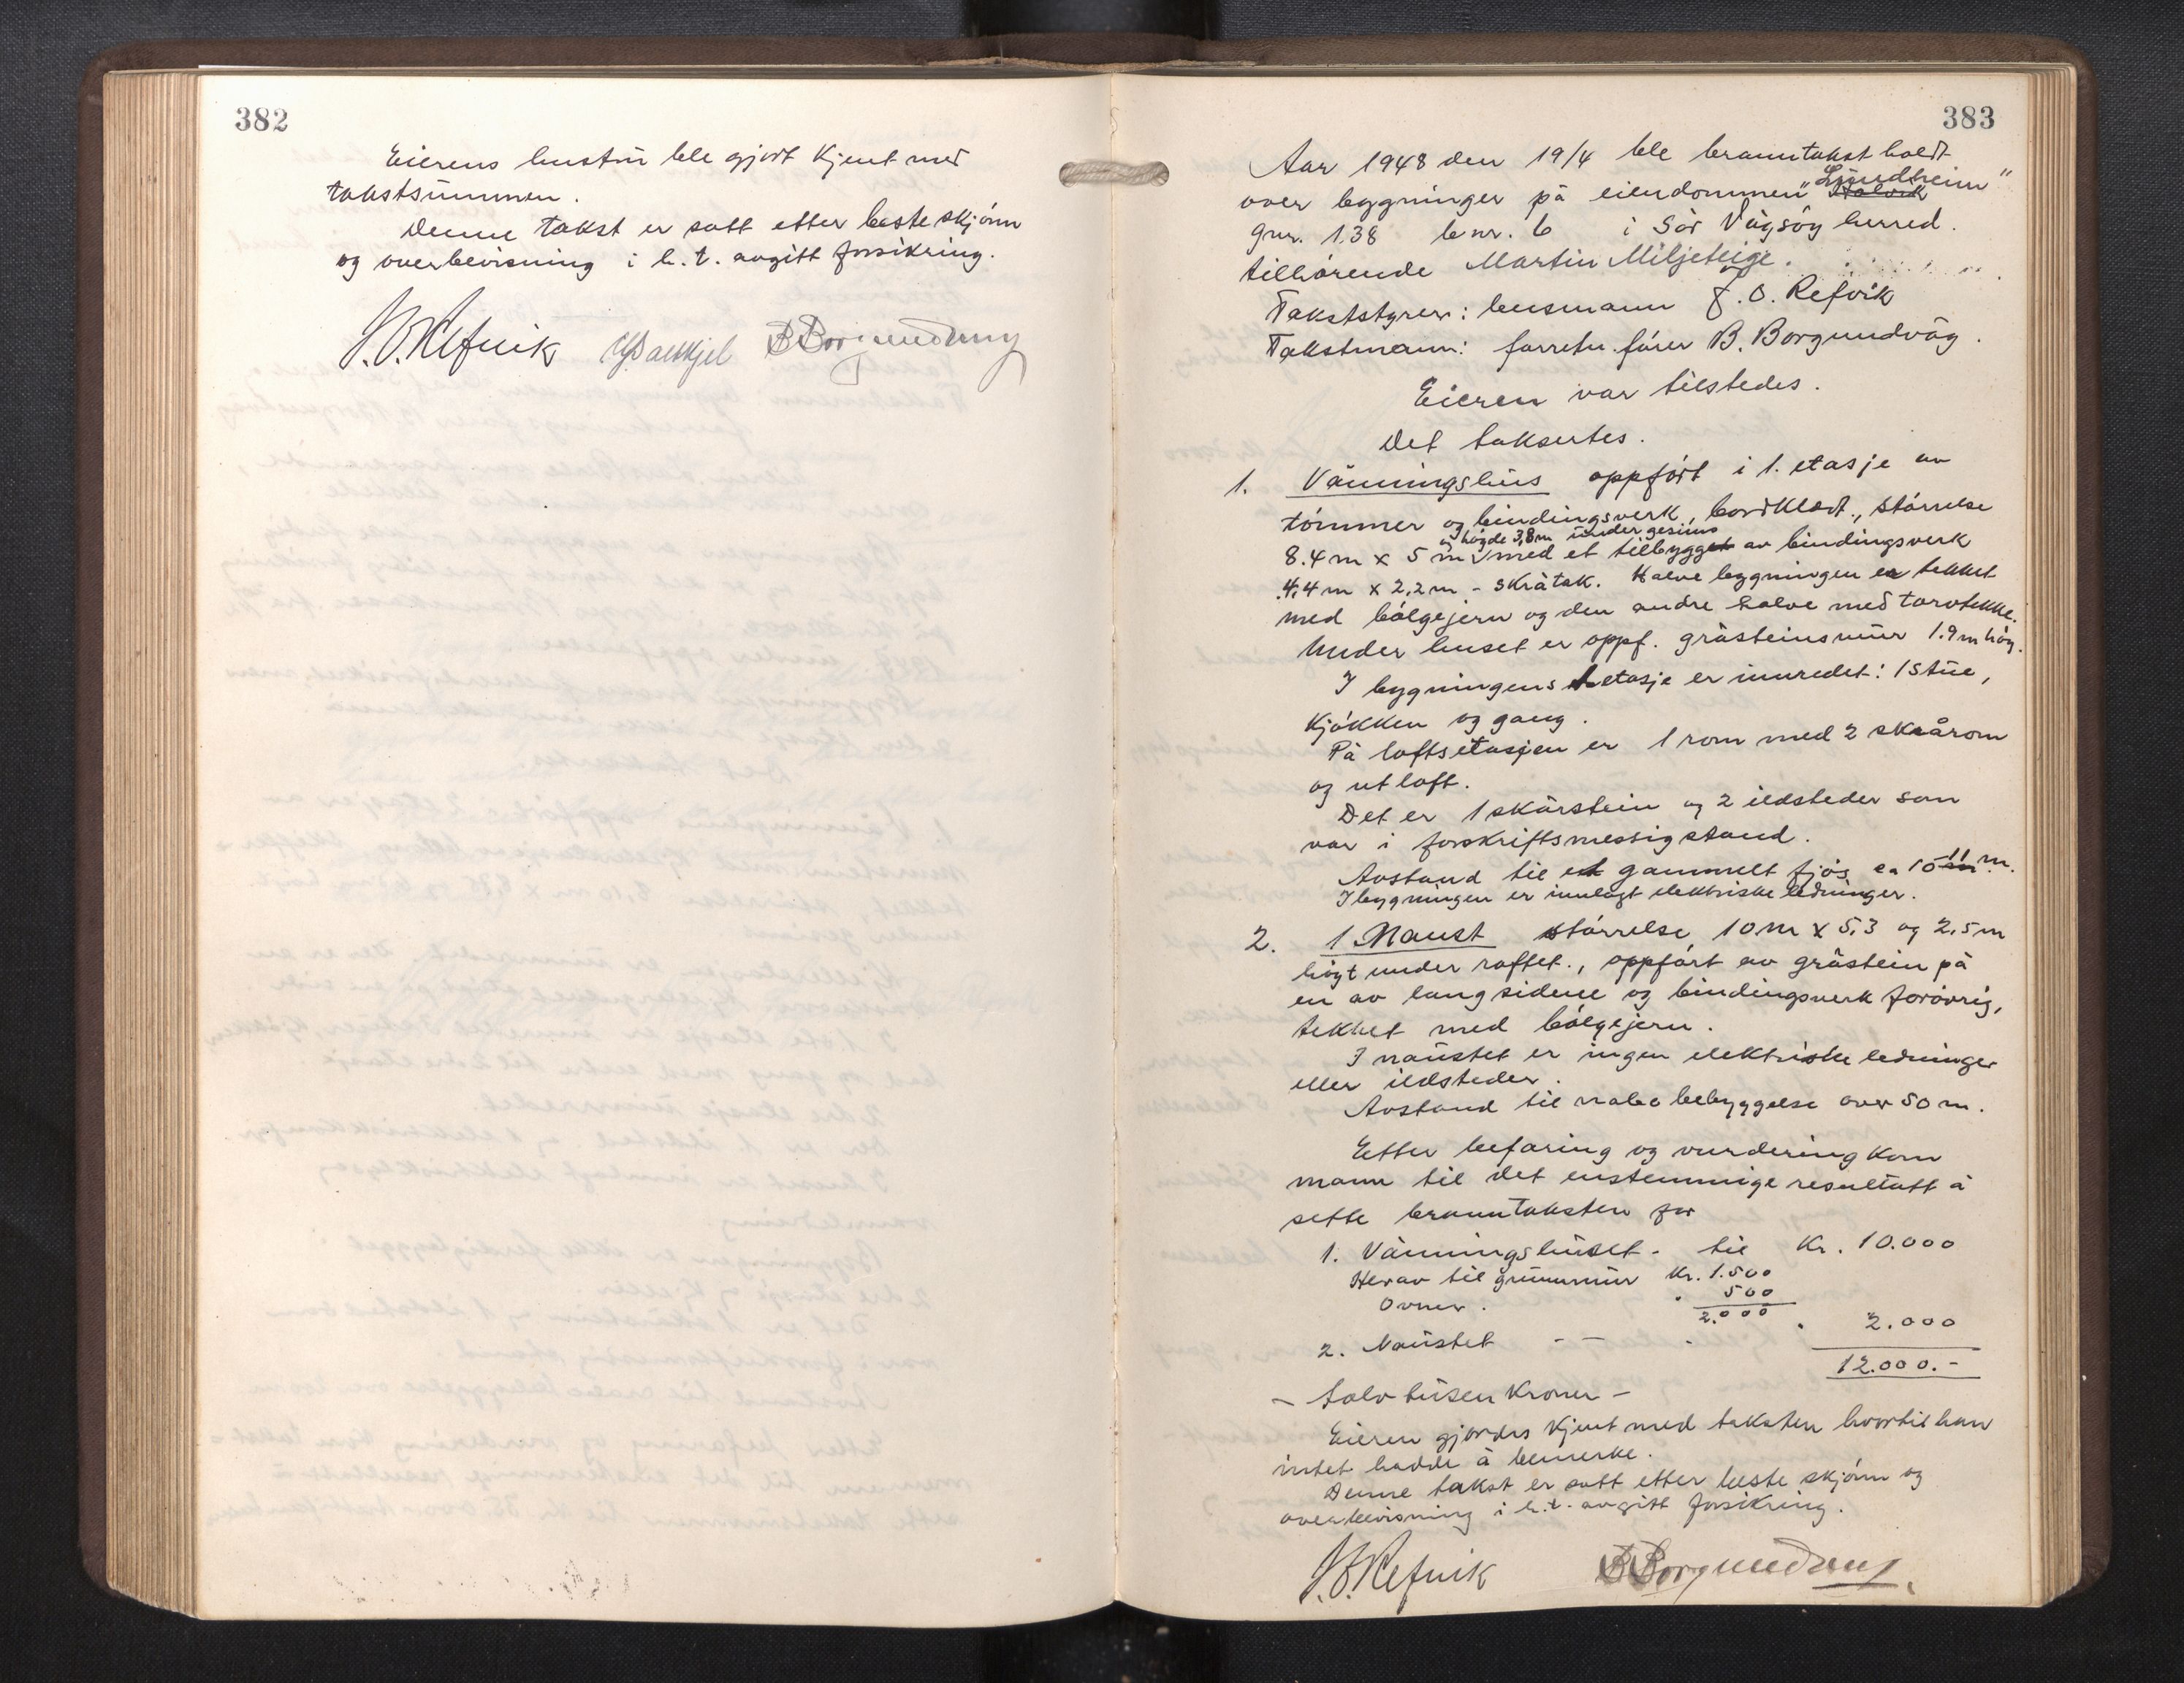 382
Eierens hustru ble gjort kjent med
takstsummen.
Denne takst er satt etter beste skjönn
og overbevisning i h.t. avgitt forsikring.
J. O. Refvik B Borgundvåg
383
Aar 1948 den 19/4 ble branntakst holdt
over bygninger på eiendommen "Sjundheim"
gnr. 138 bnr. 6 i Sör Vågsöy herred.
tilhörende Martin Miljeteige.
Takststyrer: lensmann J. O. Refvik
Takstmann: forretn.förer B. Borgundvåg.
Eieren var tilstedes.
Det taksertes.
1. Våningshus oppfört i 1. etasje av
tömmer og bindingsverk, bordklædt, störrelse
8.4 m x 5 m og högde 3,8 m under gesims med et tilbygg av bindingsverk
4,4 m x 2,2 m - skråtak. Halve bygningen er tekket
med bölgejern og den andre halve med torvtekke.
Under huset er oppf. gråsteinsmur 1.9 m höy.
I bygningens 1 etasje er innredet: 1 stue,
kjökken og gang.
På loftsetasjen er 1 rom med 2 skrårom
og utloft.
Det er 1 skårstein og 2 ildsteder som
var i forskriftsmessig stand.
Avstand til et gammelt fjös ca 11 m.
I bygningen er innlagt elektriske ledninger.
2. 1 Naust störrelse 10 m x 5,3 og 2,5 m
högt under raftet., oppfört av gråstein på
en av langsidene og bindingsverk forövrig,
tekket med bölgejern.
I naustet er ingen elektriske ledninger
eller ildsteder.
Avstand til nabobebyggelse over 50 m.
Etter befaring og vurdering kom
mann til det enstemmige resultatt å
sette branntaksten for
1. Våningshuset - til Kr. 10.000
Herav til grunnmur Kr. 1.500
Ovner. " 500
2.000
2. Naustet - - " 2.000
12.000.-
- tolv tusen kroner -
Eieren gjordes kjent med taksten hvortil han
intet hadde å bemerke.
Denne takst er satt etter beste skjönn og
overbevisning i h.t. avgitt forsikring.
J. O. Refvik B Borgundvåg